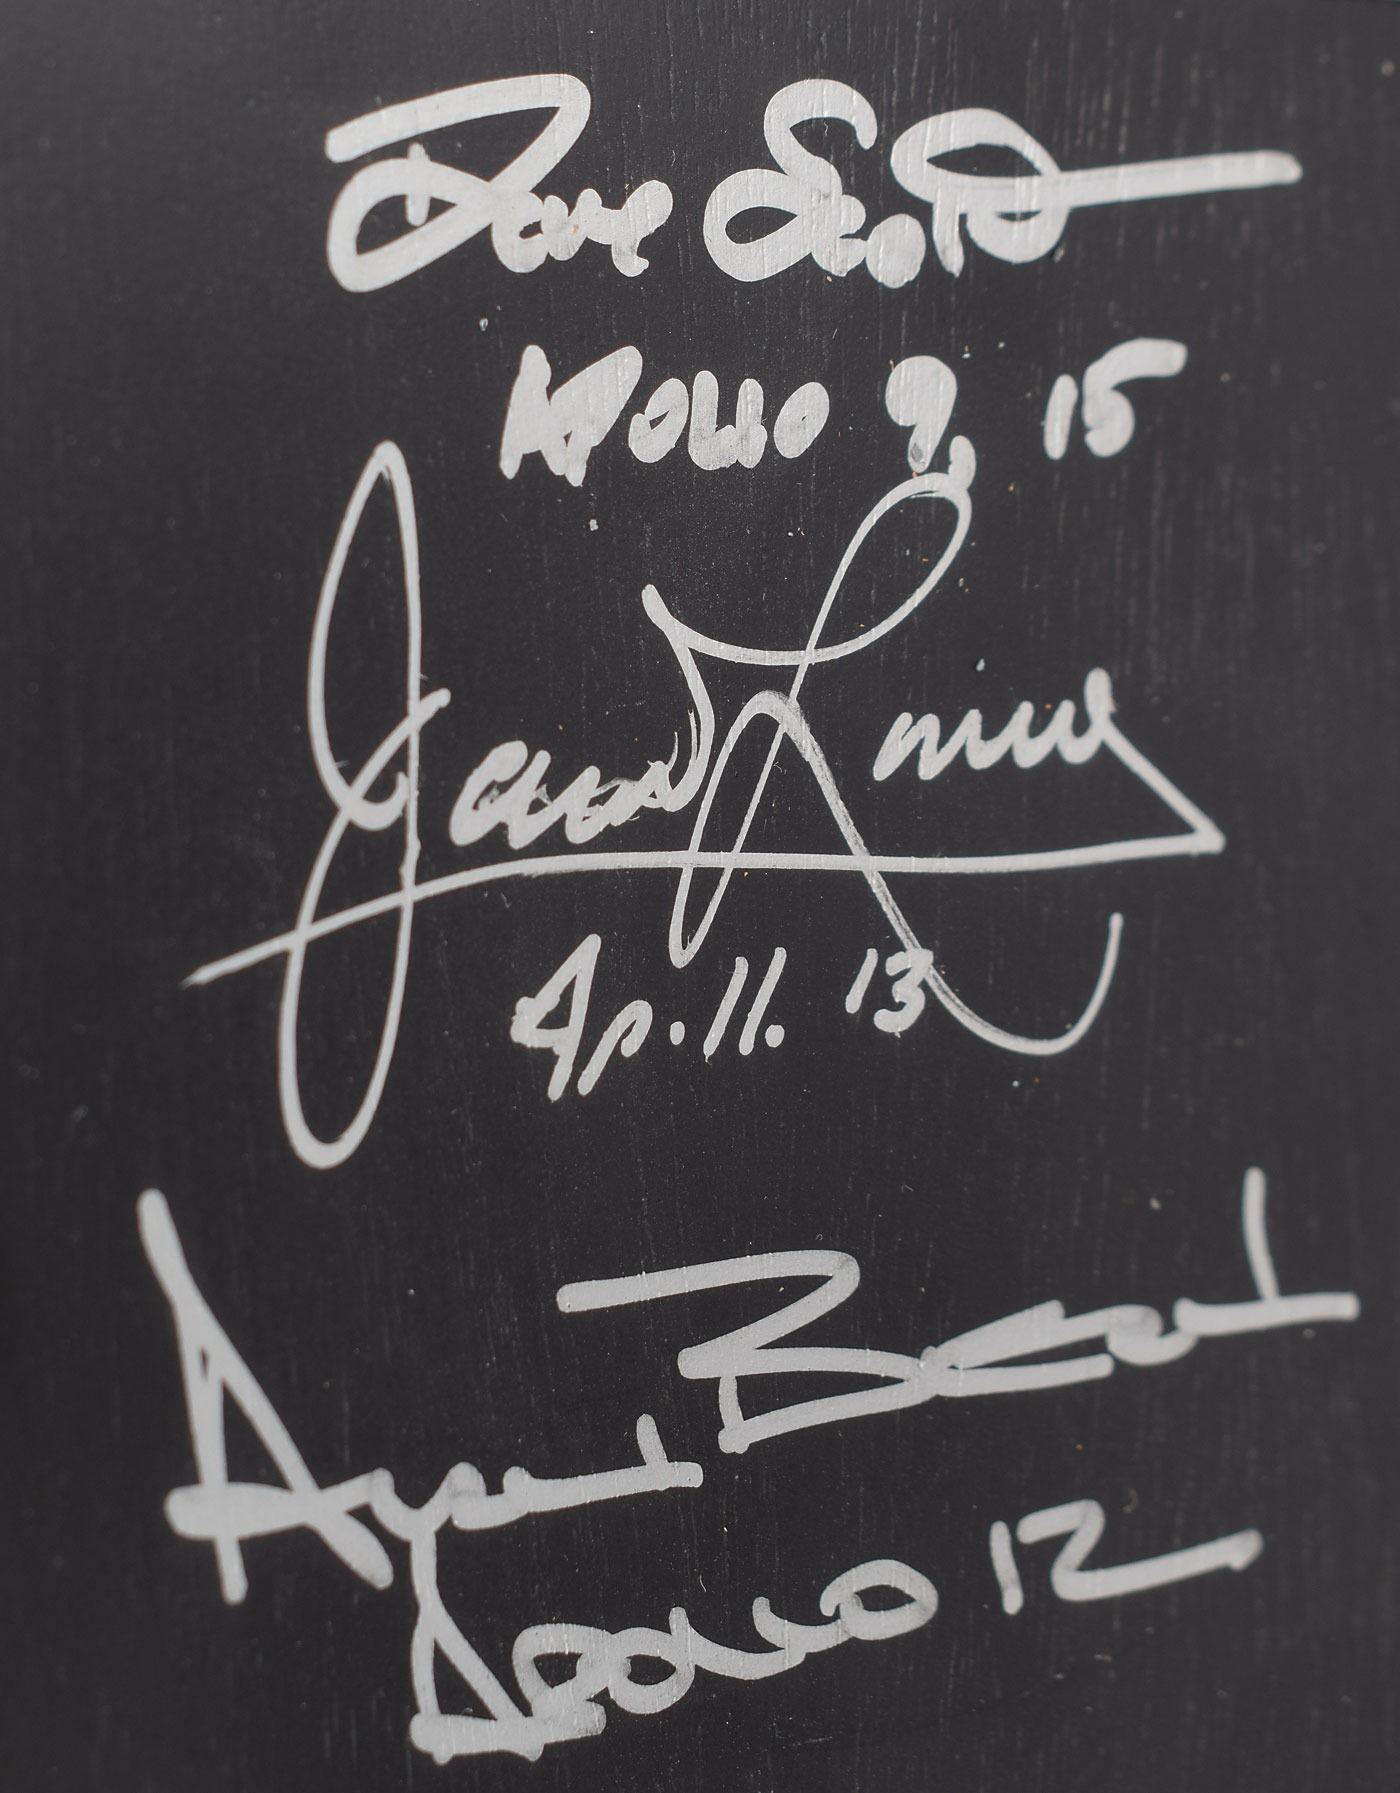 Dave Scott
APOLLO 9, 15
James Lovell
Ap. 11. 13
Alan Bean
APOLLO 12